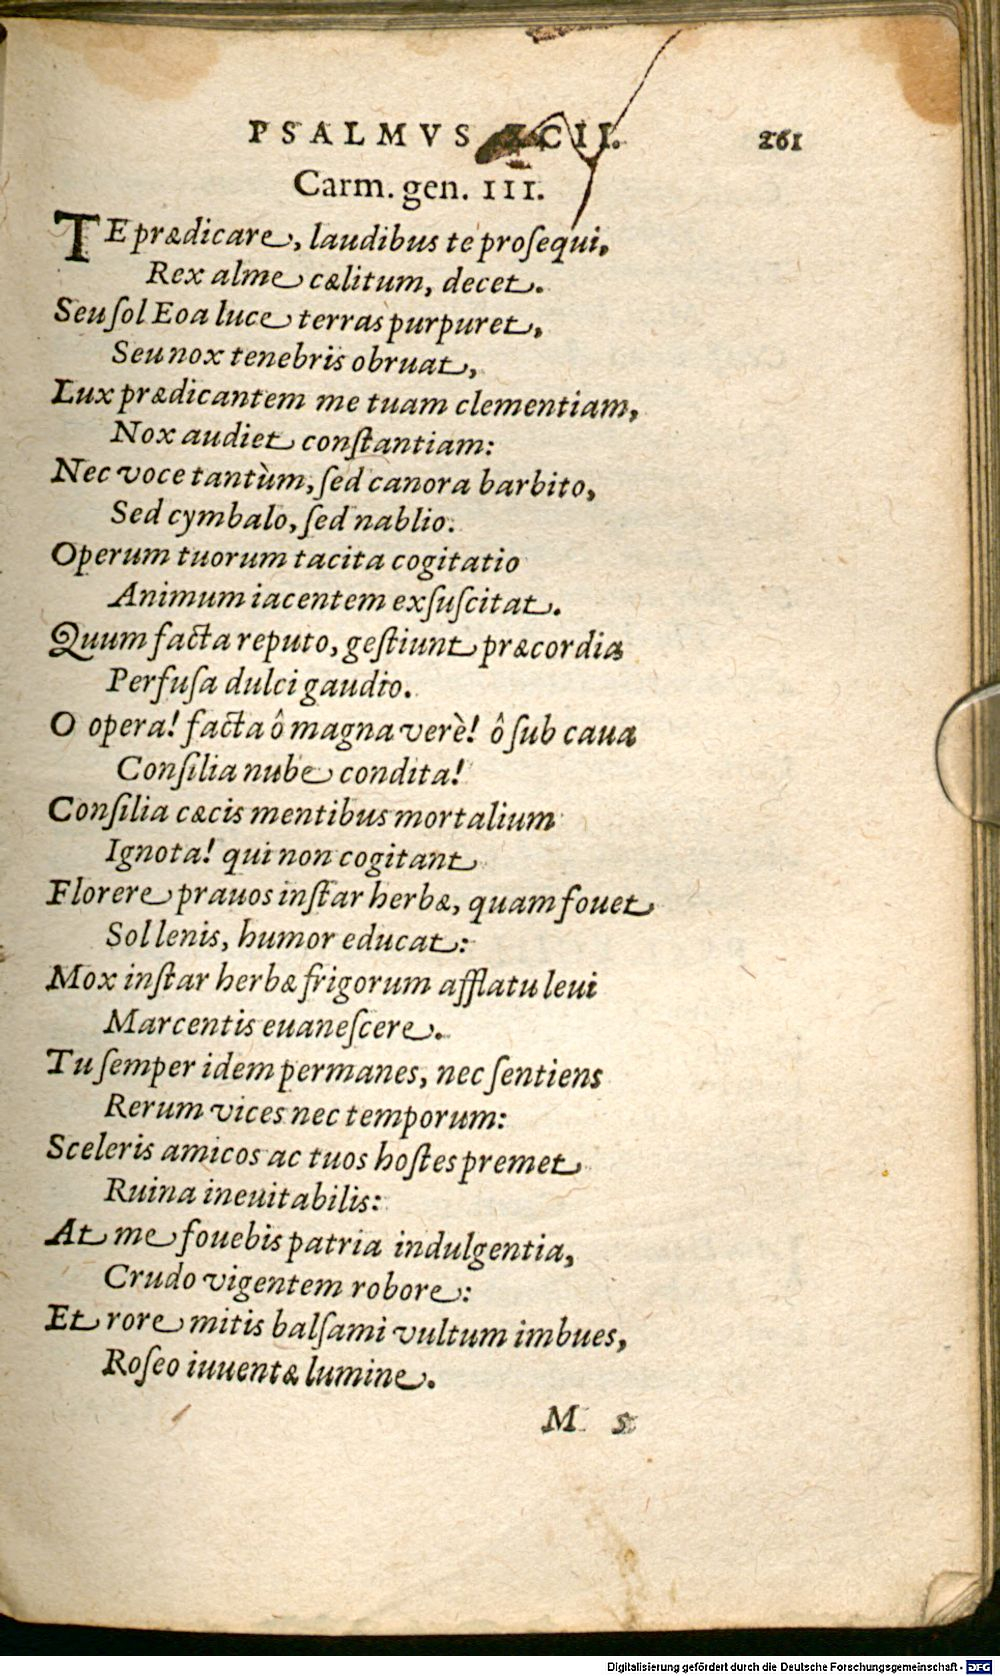 PSALMVS XCII. 261
Carm. gen. III.
TE prædicare, laudibus te proſequi,
Rex alme cælitum, decet.
Seu ſol Eoa luce terras purpuret,
Seu nox tenebris obruat,
Lux prædicantem me tuam clementiam,
Nox audiet conſtantiam:
Nec voce tantùm, ſed canora barbito,
Sed cymbalo, ſed nablio.
Operum tuorum tacita cogitatio
Animum iacentem exſuſcitat.
Quum facta reputo, geſtiunt præcordia
Perfuſa dulci gaudio.
O opera! facta ô magna verè! ô ſub caua
Conſilia nube condita!
Conſilia cæcis mentibus mortalium
Ignota! qui non cogitant
Florere prauos inſtar herbæ, quam fouet
Sol lenis, humor educat:
Mox inſtar herbæ frigorum afflatu leui
Marcentis euaneſcere.
Tu ſemper idem permanes, nec ſentiens
Rerum vices nec temporum:
Sceleris amicos ac tuos hoſtes premet
Ruina ineuitabilis:
At me fouebis patria indulgentia,
Crudo vigentem robore:
Et rore mitis balſami vultum imbues,
Roſeo iuuentæ lumine.
M 5
Digitalisierung gefördert durch die Deutsche Forschungsgemeinschaft - DFG